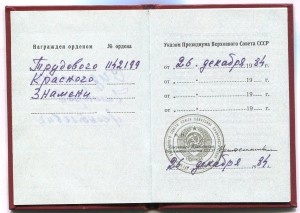 Награжден орденом № ордена
Трудового 1142199
Красного
Знамени
Указом Президиума Верховного Совета СССР
от 26 декабря 1984 г.
от „ “ 19 г.
от „ “ 19 г.
от „ “ 19 г.
Верховного Совета СССР
26 декабря 84.